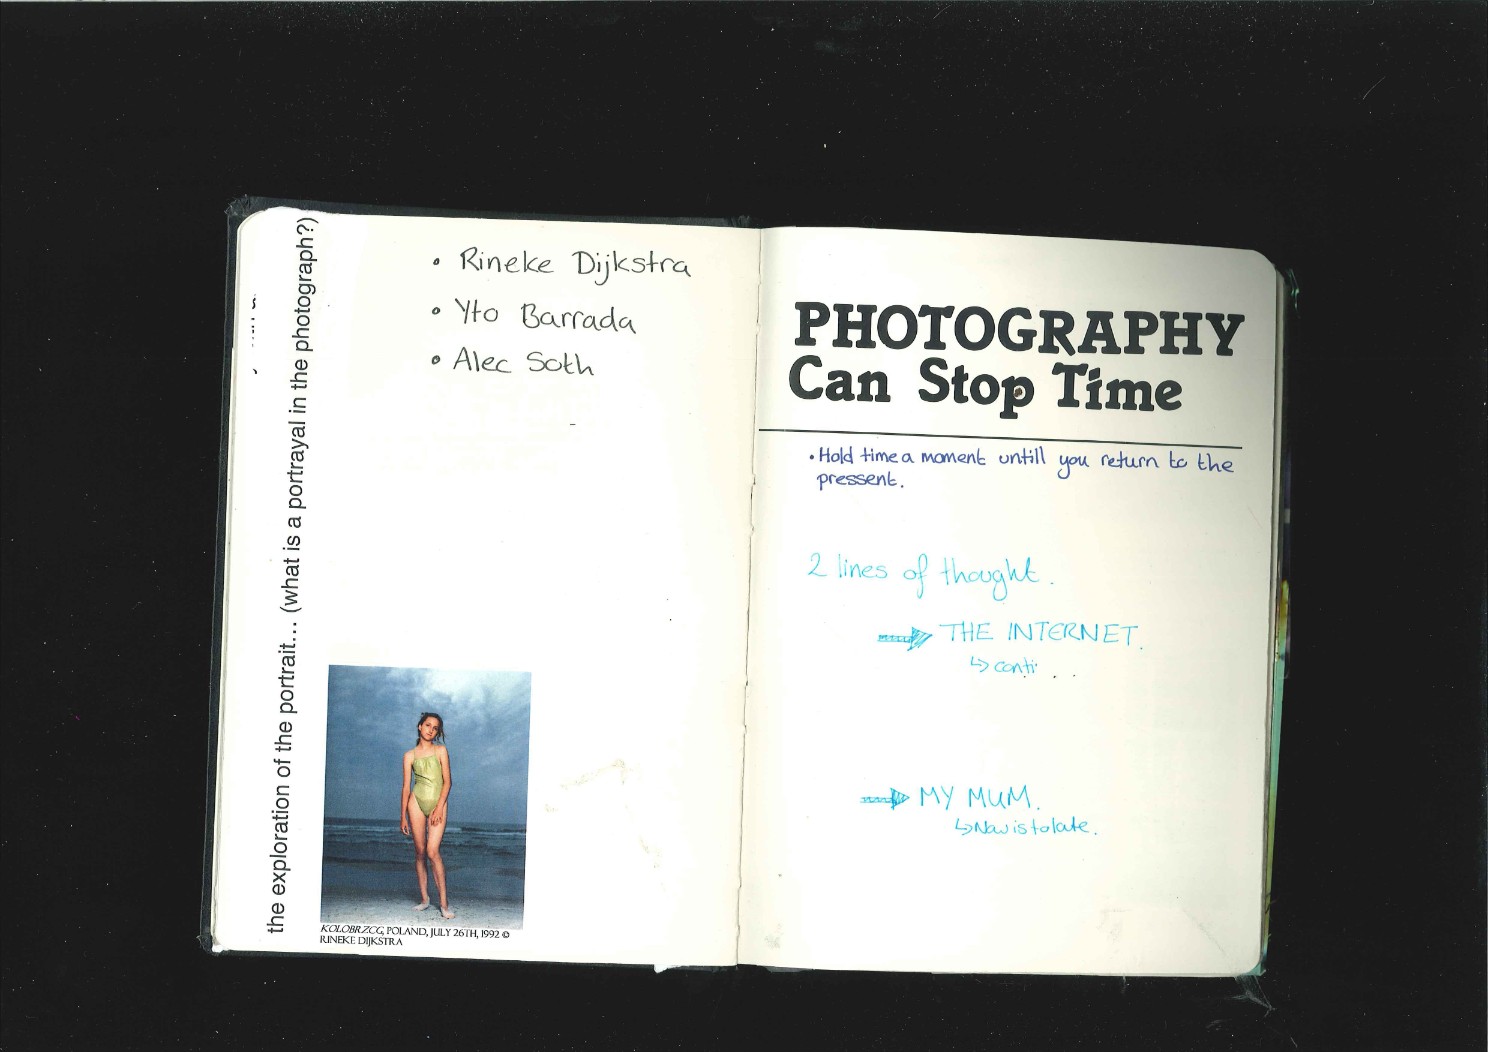 the exploration of the portrait... (what is a portrayal in the photograph?)
• Rineke Dijkstra
• Yto Barrada
• Alec Soth
KOLOBRZCG, POLAND, JULY 26TH, 1992 ©
RINEKE DIJKSTRA
PHOTOGRAPHY
Can Stop Time
• Hold time a moment untill you return to the
pressent.
2 lines of thought.
THE INTERNET.
↳ conti . . .
MY MUM.
↳ Now is to late.